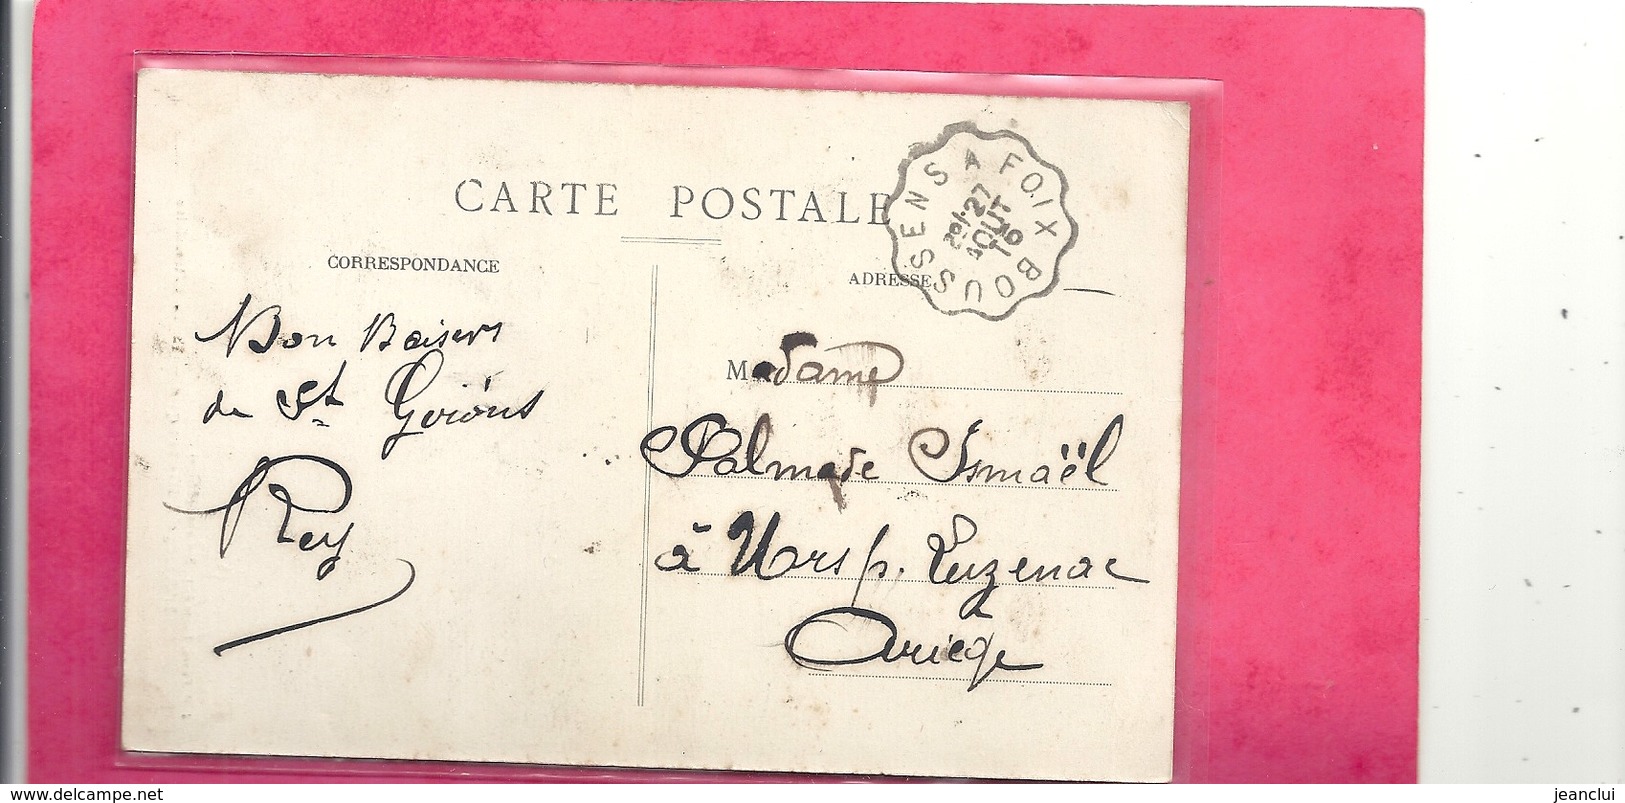 CARTE POSTALE
CORRESPONDANCE
Bon Baisers
de St Girons
Rey
ADRESSE
BOUSSENS A FOIX
27
AOUT
Madame
Palmade Ismaël
à Urs p. Luzenac
Ariège
www.delcampe.net
jeanclui